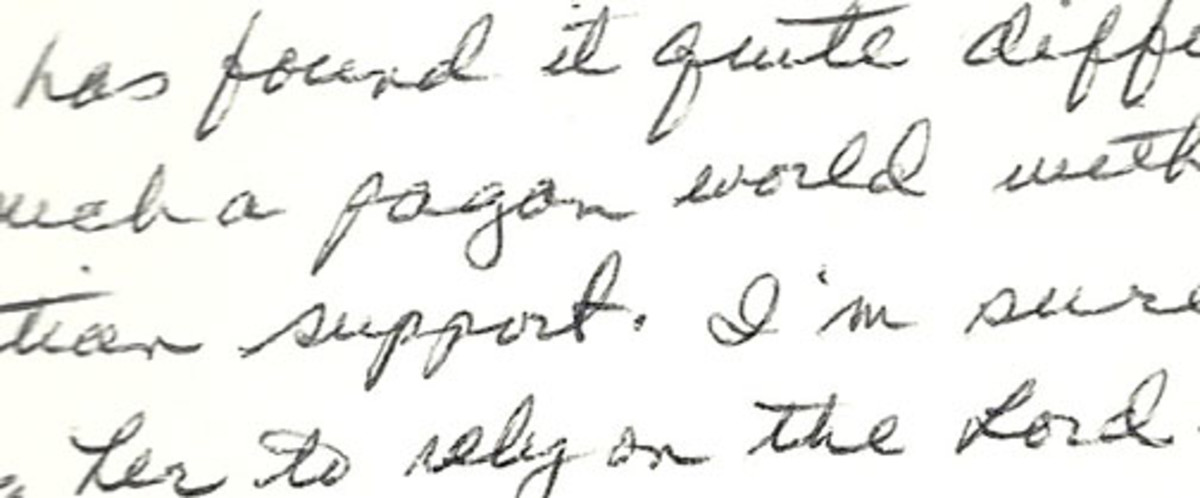 has found it quite diffe
such a pagan world with
tian support. I'm sure
her to rely on the Lord